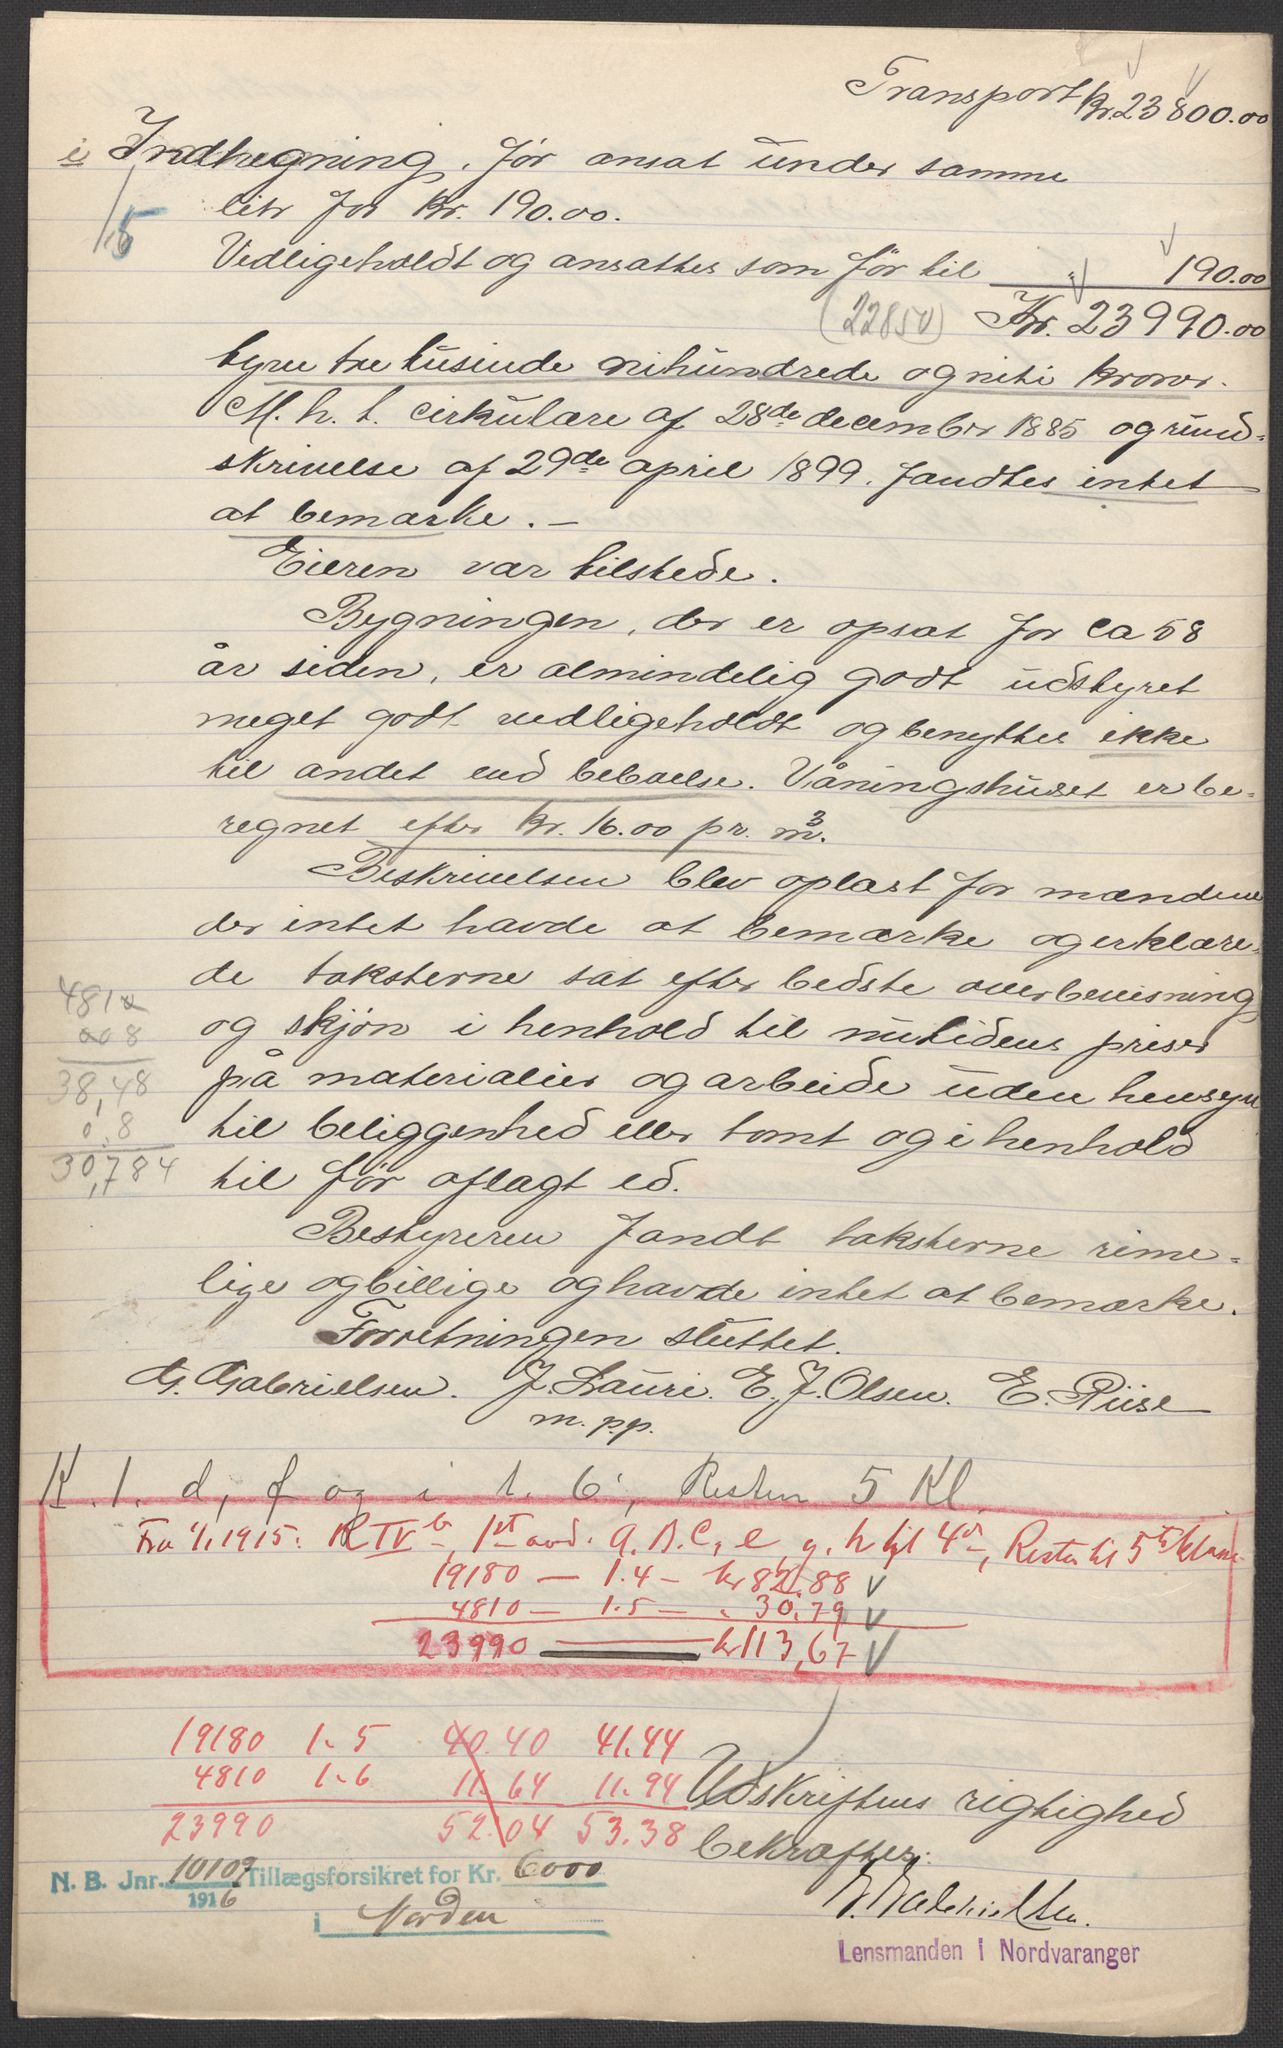 Transport Kr. 23800.00
i, Indhegning, før ansat under samme
litr for Kr. 190.00.
Vedligeholdt og ansattes som før til " 190.00
(22850) Kr. 23990.00
tyve tre tusinde nihundrede og niti kroner.
M. h. t. cirkulære af 28de december 1885 og rund=
skrivelse af 29de april 1899. fandtes intet
at bemærke. —
Eieren var tilstede.
Bygningen, der er opsat for ca 58
år siden, er almindelig godt udstyret
meget godt vedligeholdt og benyttes ikke
til andet end beboelse. Våningshuset er be=
regnet efter Kr. 16.00 pr. m3.
Beskrivelsen blev oplæst for mændene
der intet havde at bemærke og erklære=
de taksterne sat efter bedste overbevisning
og skjøn i henhold til nutidens priser
på materialier og arbeide uden hensyn
til beliggenhed eller tomt og i henhold
til før aflagt ed.
481
8
38,48
0,8
30,784
Bestyreren fandt taksterne rime=
lige og billige og havde intet at bemærke.
Forretningen sluttet.
G. Gabrielsen. J. Lauri. E. J. Olsen. E. Riise
m. p. p.
K. 1. d, f og i t. 6', Resten 5 Kl.
Fra 1/1 1915. R IV b, 1st avd. a. b. c, e, g, h til 4de, Resten til 5te klasse
19180 — 1.4 — kr 82.88
4810 — 1.5 — " 30.79
23990 — kr 113,67
19180 1.5 40.40 41.44
4810 1.6 11.64 11.94
23990 52.04 53.38
Udskriftens rigtighed
bekræftes:
N. B. Jnr. 10109 Tillægsforsikret for Kr. 6000
1916
i Norden
G. Gabrielsen.
Lensmanden i Nordvaranger